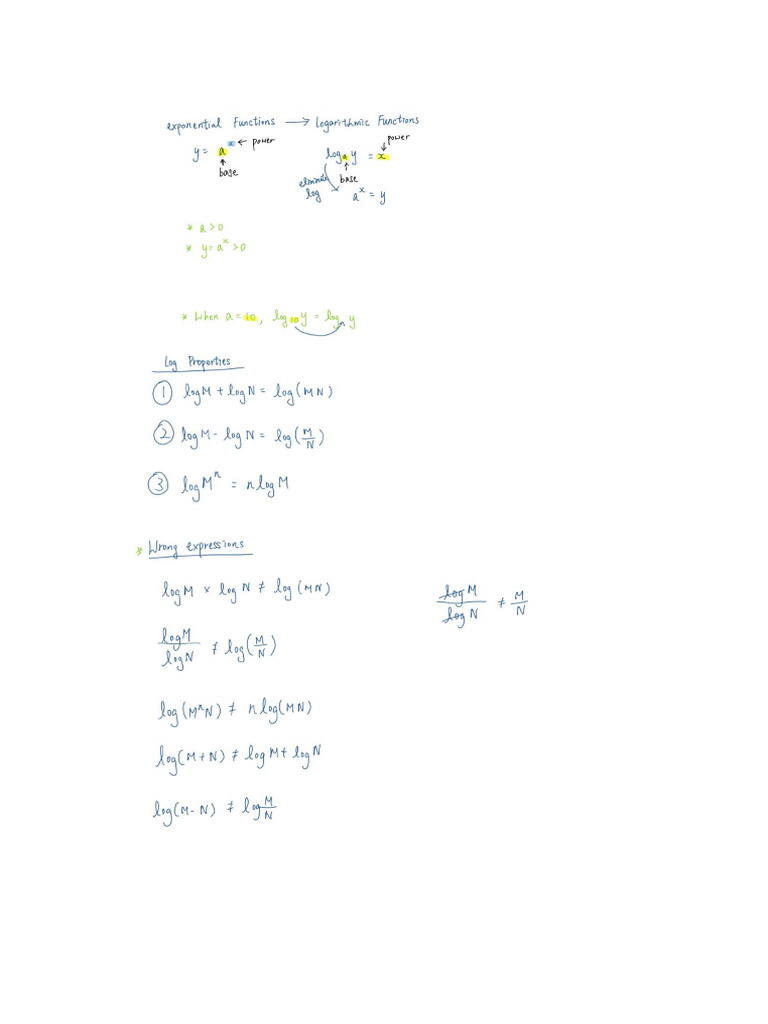 exponential Functions → Logarithmic Functions
y = a^x ← power
↑
base
power
↓
log_a y = x
↑
base
eliminate
log
a^x = y
* a > 0
* y = a^x > 0
* When a = 10, log_10 y = log_n y
Log Properties
① log M + log N = log (MN)
② log M - log N = log (M/N)
③ log M^n = n log M
* Wrong expressions
log M × log N ≠ log (MN)
log M / log N ≠ M/N
log M / log N ≠ log (M/N)
log (M^n N) ≠ n log (MN)
log (M + N) ≠ log M + log N
log (M - N) ≠ log M/N